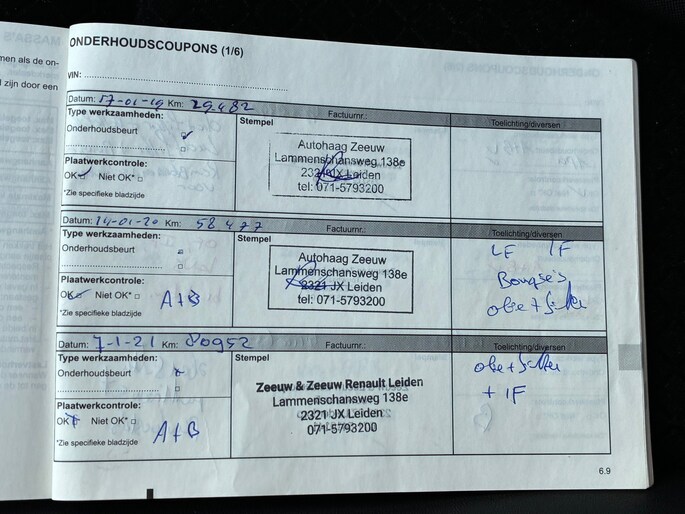 men als de on-
d zijn door een
ONDERHOUDSCOUPONS (1/6)
VIN:
Datum: 17-01-19 Km: 29.482 Factuurnr.: Toelichting/diversen
Type werkzaamheden:
Onderhoudsbeurt
Plaatwerkcontrole:
OK Niet OK*
*Zie specifieke bladzijde
Stempel
Autohaag Zeeuw
Lammenschansweg 138e
2321 JX Leiden
tel: 071-5793200
Datum: 14-01-20 Km: 58477 Factuurnr.: Toelichting/diversen
Type werkzaamheden:
Onderhoudsbeurt
Plaatwerkcontrole:
OK Niet OK* A+B
*Zie specifieke bladzijde
Stempel
Autohaag Zeeuw
Lammenschansweg 138e
2321 JX Leiden
tel: 071-5793200
LF IF
Bougie's
olie + filter
Datum: 7-1-21 Km: 80952 Factuurnr.: Toelichting/diversen
Type werkzaamheden:
Onderhoudsbeurt
Plaatwerkcontrole:
OK Niet OK* A+B
*Zie specifieke bladzijde
Stempel
Zeeuw & Zeeuw Renault Leiden
Lammenschansweg 138e
2321 JX Leiden
071-5793200
olie + filter
+ IF
6.9